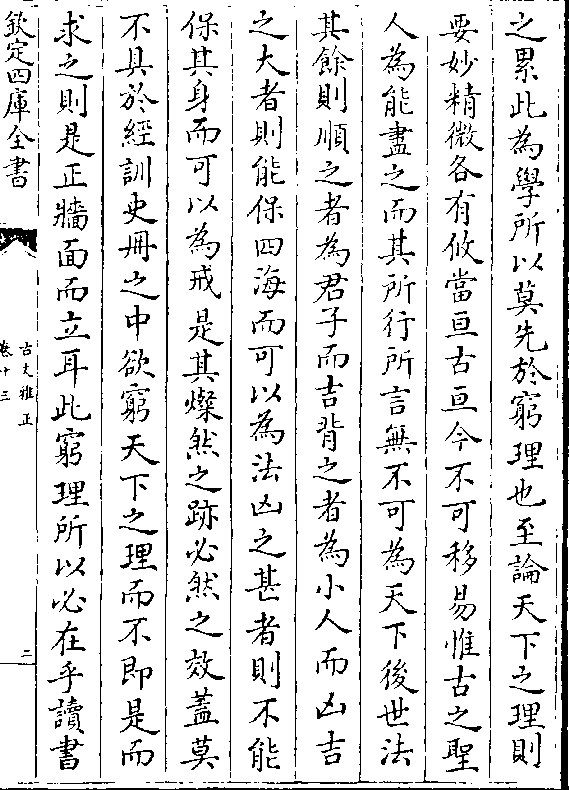 之累此為學所以莫先於窮理也至論天下之理則
要妙精微各有攸當亘古亘今不可移易惟古之聖
人為能盡之而其所行所言無不可為天下後世法
其餘則順之者為君子而吉背之者為小人而凶吉
之大者則能保四海而可以為法凶之甚者則不能
保其身而可以為戒是其燦然之跡必然之效蓋莫
不具於經訓史冊之中欲窮天下之理而不即是而
求之則是正牆面而立耳此窮理所以必在乎讀書
欽定四庫全書
古文雅正
卷十三
二